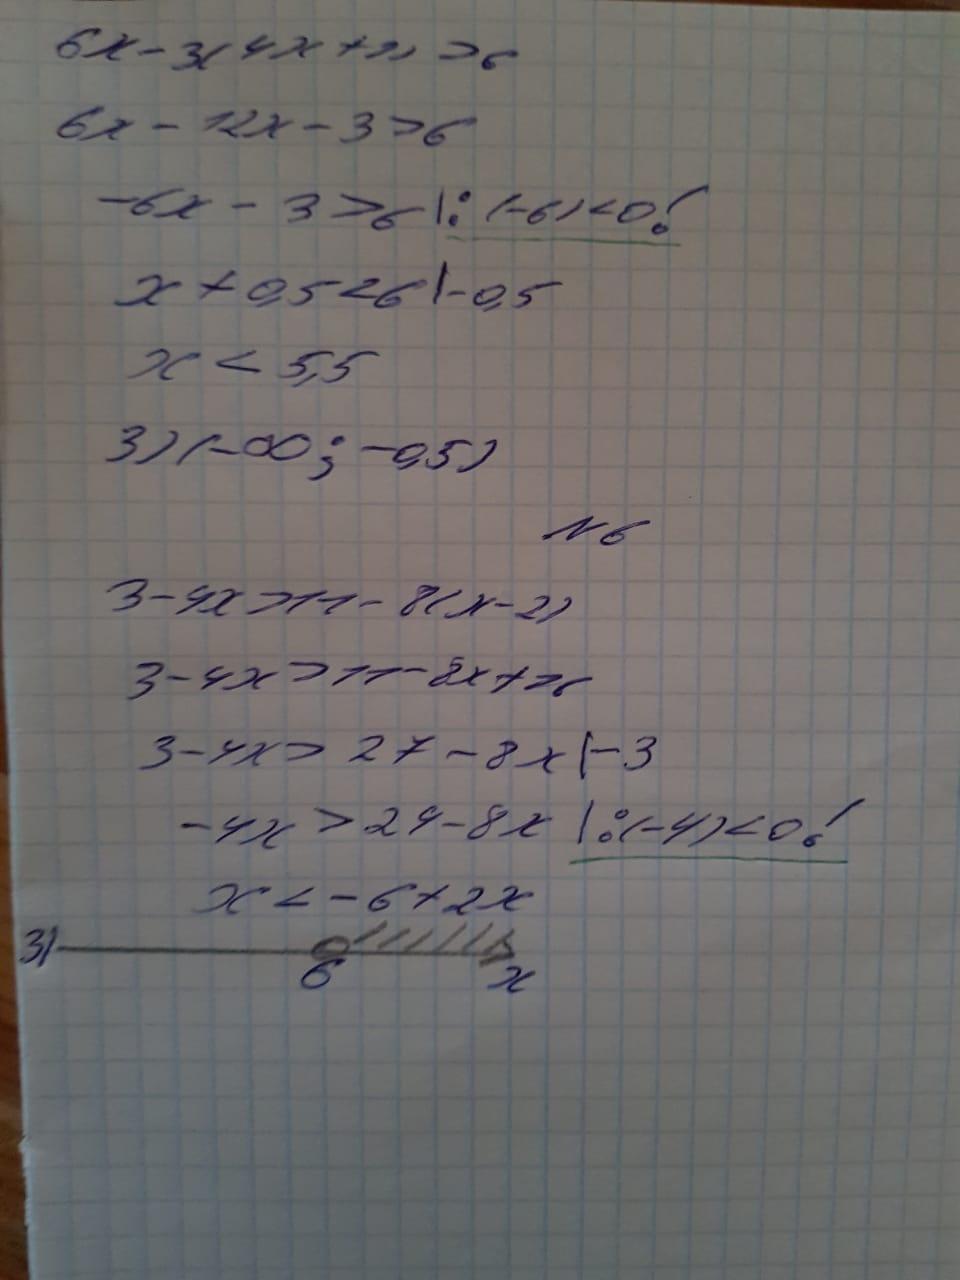 6x - 3(4x + 1) > 6
6x - 12x - 3 > 6
-6x - 3 > 6 |: (-6) < 0!
x + 0,5 < 6 |-0,5
x < 5,5
3) (-∞; -0,5)
№6
3 - 4x > 11 - 8(x - 2)
3 - 4x > 11 - 8x + 16
3 - 4x > 27 - 8x |-3
-4x > 24 - 8x |:(-4) < 0!
x < -6 + 2x
3)
6 x